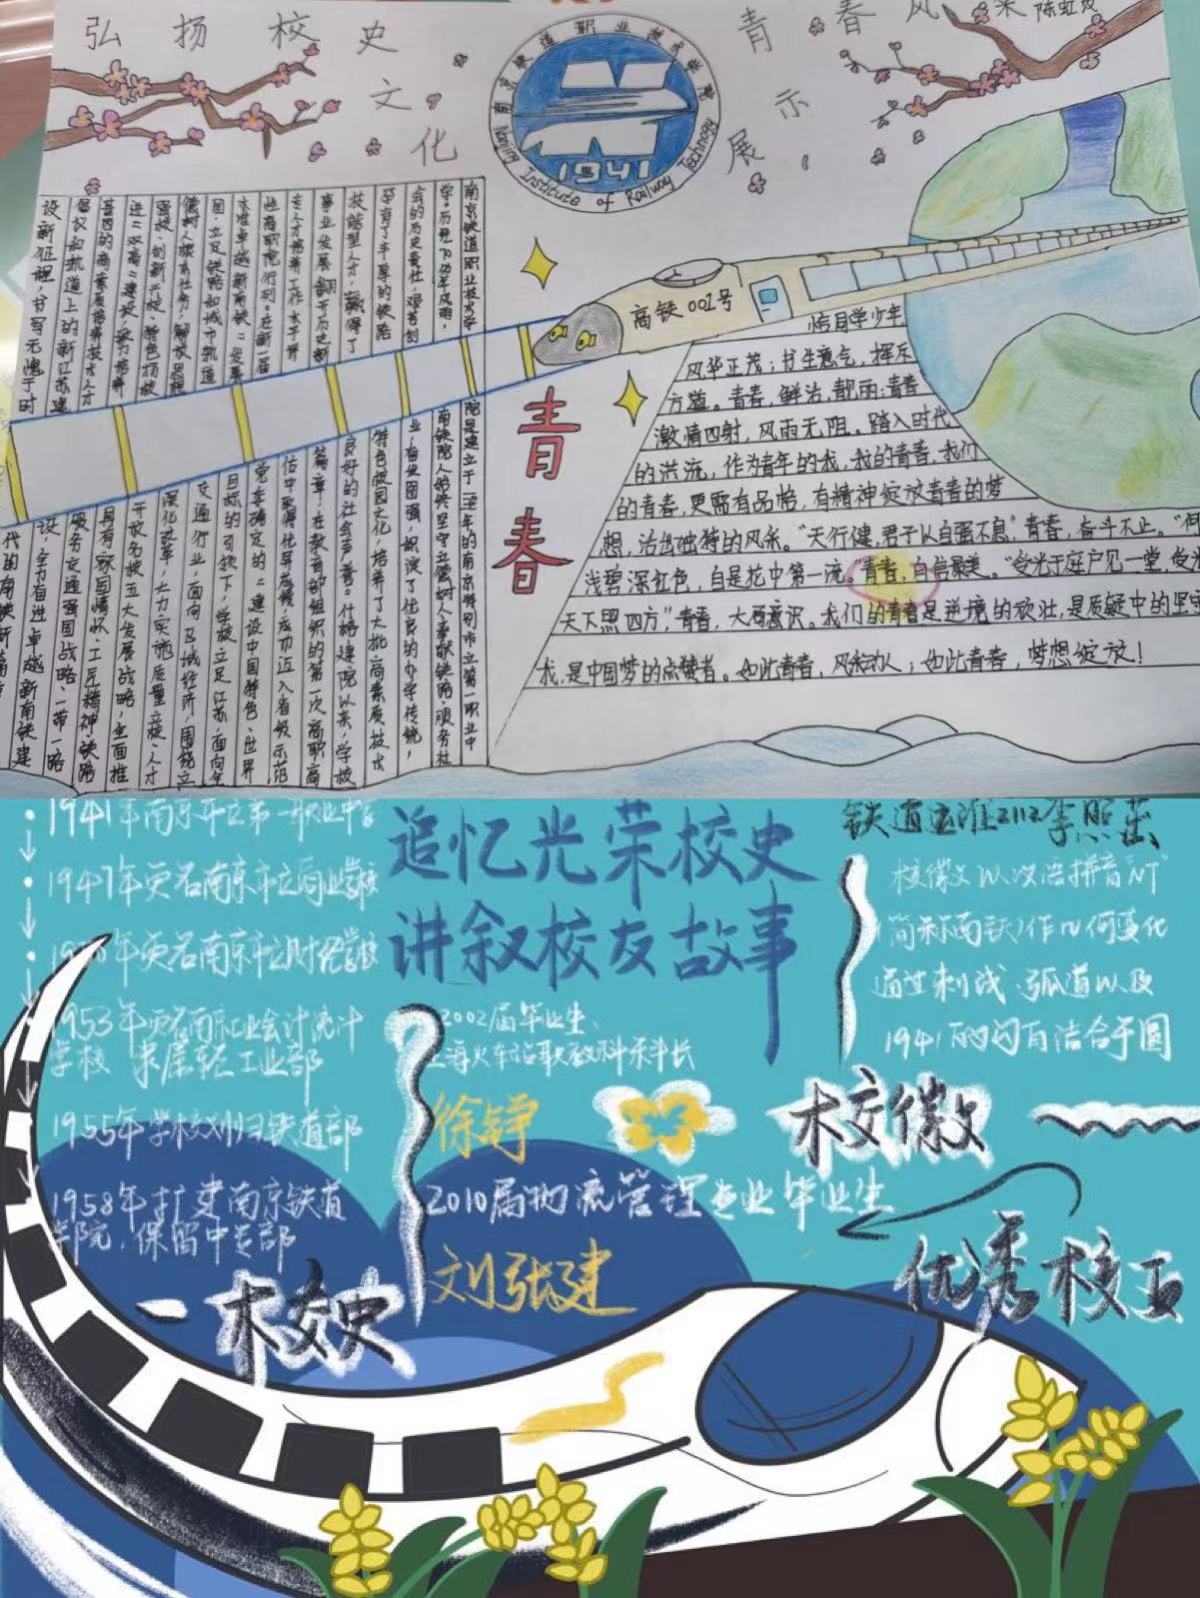 弘扬校史
文化
青春风采
展示
南京铁道职业技术学院
Nanjing Institute of Railway Technology
1941
高铁002号
青春
恰同学少年,
风华正茂;书生意气,挥斥
方遒。青春,鲜活,靓丽;青春
激情四射,风雨无阻。踏入时代
的洪流,作为青年的我,我的青春,我们
的青春,更需有品格,有精神绽放青春的梦
想,活出独特的风采。“天行健,君子以自强不息”,青春,奋斗不止。“何
浅碧深红色,自是花中第一流。”青春,自信最美。“受光于庭户见一堂,受光
天下照四方”,青春,大局意识。我们的青春是逆境的欢壮,是质疑中的坚定
我,是中国梦的点赞者。如此青春,风采动人;如此青春,梦想绽放!
南京铁道职业技术学
院是建立于1941年的南京特别市立第一职业中
南铁院人始终坚守立德树人奉献铁路、服务社
会的历史责任,艰苦创
业,奋发图强,积淀了优良的办学传统,
孕育了丰厚的铁路
特色校园文化,培养了大批高素质技术
技能型人才,赢得了
良好的社会声誉。升格建院以来,学校
事业发展翻开历史新
篇章,在教育部组织的第一次高职高
专人才培养工作水平评
估中取得优异成绩,成功迈入省级示范
性高职院行列。在新一届
党委确定的“建设中国特色、世界
水准卓越新南铁”发展
目标的引领下,学校立足江苏,面向全
国,立足铁路和城市轨道
交通行业,面向区域经济,围绕立
德树人根本任务,解放思想
深化改革,大力实施质量立校、人才
强校、创新兴校、特色扬校
开放名校五大发展战略,全面推
进“双高”建设,努力培养
具有家国情怀、工匠精神、铁路
基因的高素质技术技能人才
服务交通强国战略、一带一路
倡议和轨道上的“新江苏”建
设,全力奋进卓越新南铁建
设新征程,书写无愧于时
代的南铁新篇章
追忆光荣校史
讲叙校友故事
铁道运输2112李照蕓
1941年南京市立第一职业中学
1947年更名南京市立商业学校
年更名南京市立财经学校
1953年更名南京工业会计统计
学校 隶属轻工业部
1955年学校划归铁道部
1958年扩建南京铁道
学院,保留中专部
校史
2002届毕业生、
上海火车站职教科科长
徐铮
2010届物流管理专业毕业生
刘张建
校徽以汉语拼音“NT”
(简称南铁)作几何变化
通过剩线、弧道以及
1941的勾勒结合于圆
校徽
优秀校友